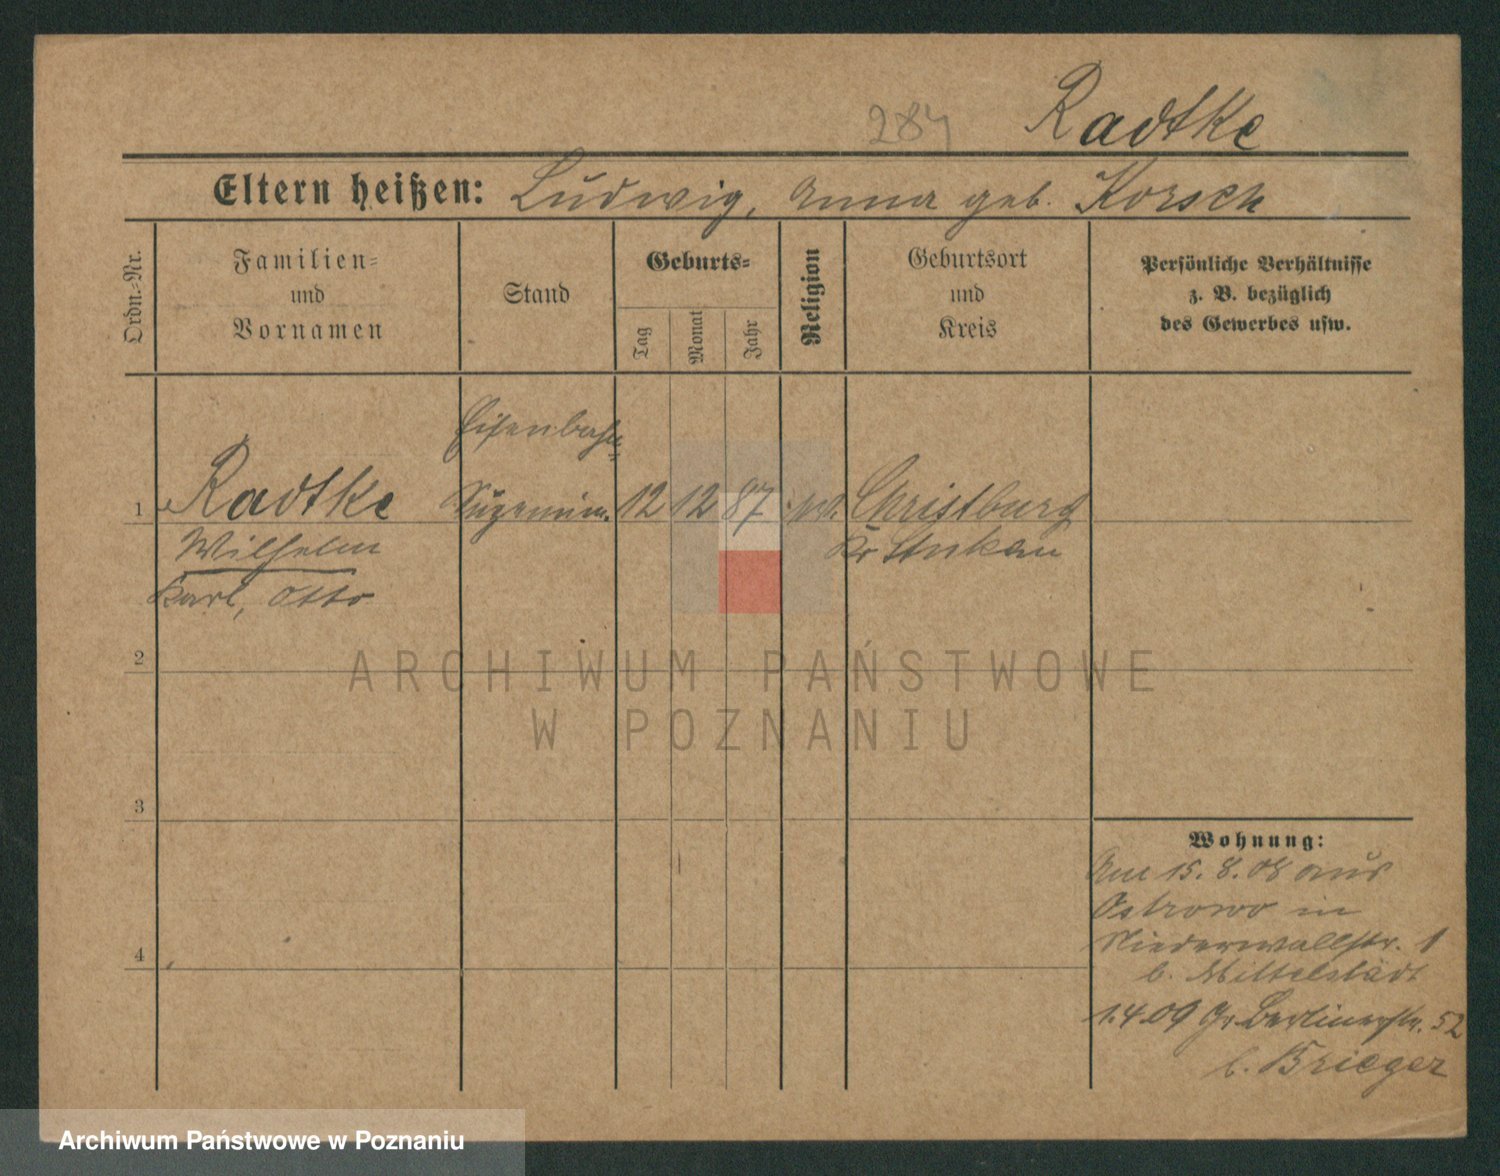 284 Radtke
Eltern heißen: Ludwig, Anna geb. Korsch
Ordn.-Nr.
Familien-
und
Vornamen
Stand
Geburts-
Tag
Monat
Jahr
Religion
Geburtsort
und
Kreis
Persönliche Verhältnisse
z. B. bezüglich
des Gewerbes usw.
Eisenbahn
1 Radtke 12 12 87 Christburg
Wilhelm
Kr Stuhm
Karl, Otto
2
ARCHIWUM PAŃSTWOWE
W POZNANIU
3
Wohnung:
Am 15. 8. 08 aus
Ostrowo in
Niederwallstr. 1
b. Mittelstädt
1.4.09 Gr. Berlinerstr. 52
b. Brieger
4
Archiwum Państwowe w Poznaniu